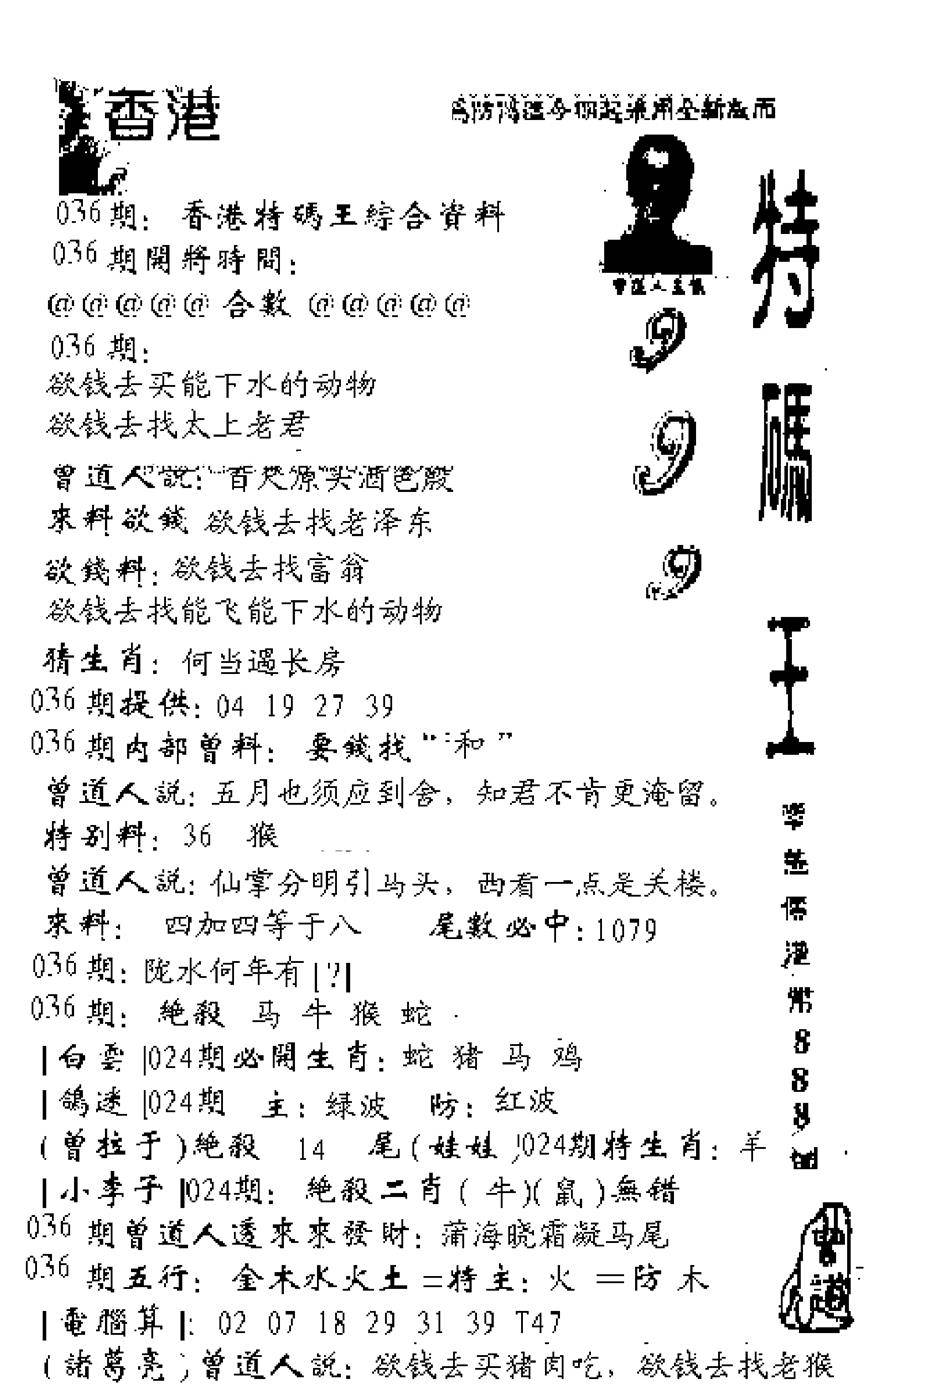 香港
特碼王
999
036期：香港特碼王綜合資料
036期開將時間：
@@@@@合數@@@@@
036期：
欲钱去买能下水的动物
欲钱去找太上老君
曾道人說：百尺源头酒
來料欲錢 欲钱去找老泽东
欲錢料：欲钱去找富翁
欲钱去找能飞能下水的动物
猜生肖：何当遇长房
036期提供：04 19 27 39
036期内部曾料：要錢找“ 和 ”
曾道人説：五月也须应到舍，知君不肯更淹留。
特别料：36 猴
曾道人説：仙掌分明引马头，西看一点是关楼。
來料： 四加四等于八 尾數必中：1079
036期：陇水何年有|?|
036期：絶殺 马 牛 猴 蛇
|白雲|024期必開生肖：蛇 猪 马 鸡
|鴿迷|024期 主：绿波 防：红波
(曾拉于)絶殺 14 尾(娃娃)024期特生肖：羊
|小李子|024期：絶殺二肖(牛)(鼠)無错
036期曾道人透來來發財：蒲海晓霜凝马尾
036期五行：金木水火土=特主：火 =防木
|電腦算|：02 07 18 29 31 39 T47
(諸葛亮)曾道人説：欲钱去买猪肉吃，欲钱去找老猴
港幣888
曾道